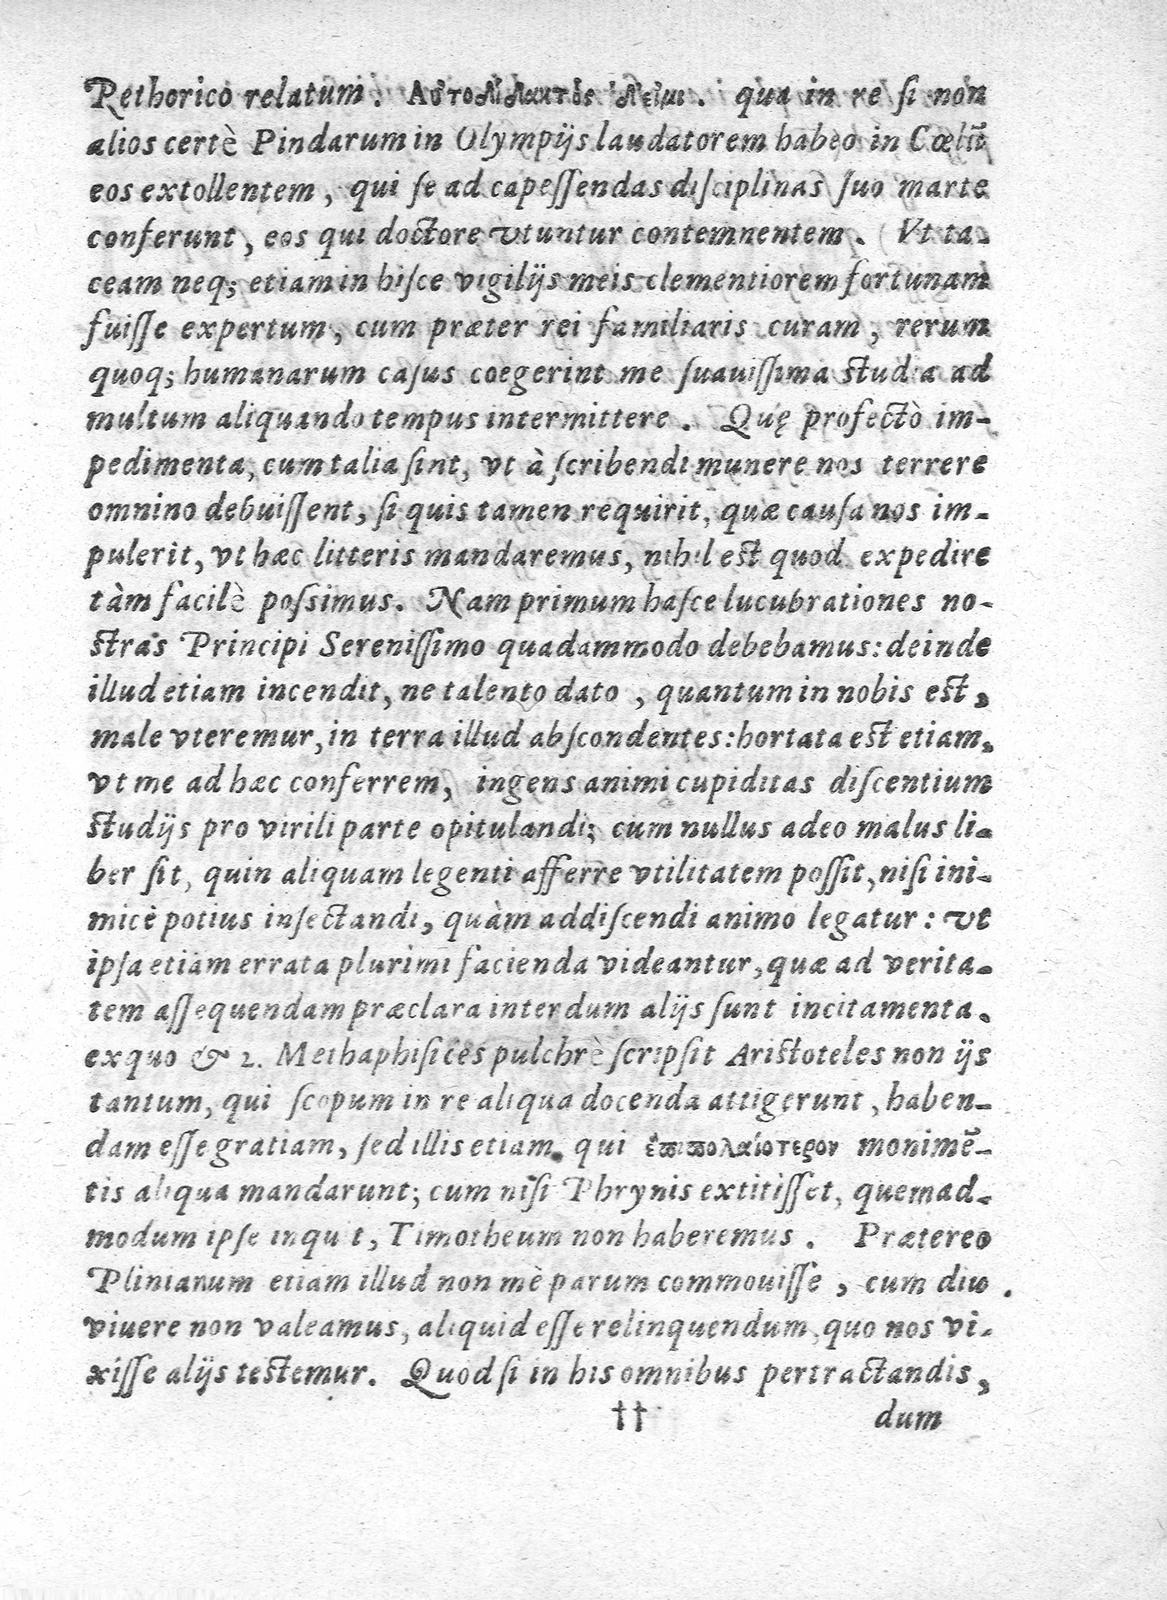 Rethorico relatum. Αὐτοδίδακτὸς δ'εἰμι. qua in re ſi non
alios certè Pindarum in Olympijs laudatorem habeo in Cœlũ
eos extollentem, qui ſe ad capeſſendas diſciplinas ſuo marte
conferunt, eos qui doctore vtuntur contemnentem. Vt ta-
ceam neq; etiam in hiſce vigilijs meis clementiorem fortunam
fuiſſe expertum, cum præter rei familiaris curam, rerum
quoq; humanarum caſus coegerint me ſuauiſſima studia ad
multum aliquando tempus intermittere. Quę profectò im-
pedimenta, cum talia ſint, vt à ſcribendi munere nos terrere
omnino debuiſſent, ſi quis tamen requirit, quæ cauſa nos im-
pulerit, vt hæc litteris mandaremus, nihil est quod expedire
tàm facilè poſsimus. Nam primum haſce lucubrationes no-
stras Principi Sereniſſimo quadammodo debebamus: deinde
illud etiam incendit, ne talento dato, quantum in nobis est,
male vteremur, in terra illud abſcondentes: hortata est etiam,
vt me ad hæc conferrem, ingens animi cupiditas diſcentium
studijs pro virili parte opitulandi; cum nullus adeo malus li-
ber ſit, quin aliquam legenti afferre vtilitatem poſſit, niſi ini-
micè potius inſectandi, quàm addiſcendi animo legatur: vt
ipſa etiam errata plurimi facienda videantur, quæ ad verita-
tem aſſequendam præclara interdum alijs ſunt incitamenta.
ex quo & 2. Methaphiſices pulchrè ſcripſit Ariſtoteles non ijs
tantum, qui ſcopum in re aliqua docenda attigerunt, haben-
dam eſſe gratiam, ſed illis etiam, qui ἐπιπολαίοτερον monimẽ-
tis aliqua mandarunt; cum niſi Phrynis extitiſſet, quemad-
modum ipſe inquit, Timotheum non haberemus. Prætereo
Plinianum etiam illud non mè parum commouiſſe, cum diu
viuere non valeamus, aliquid eſſe relinquendum, quo nos vi-
xiſſe alijs testemur. Quod ſi in his omnibus pertractandis,
†† dum